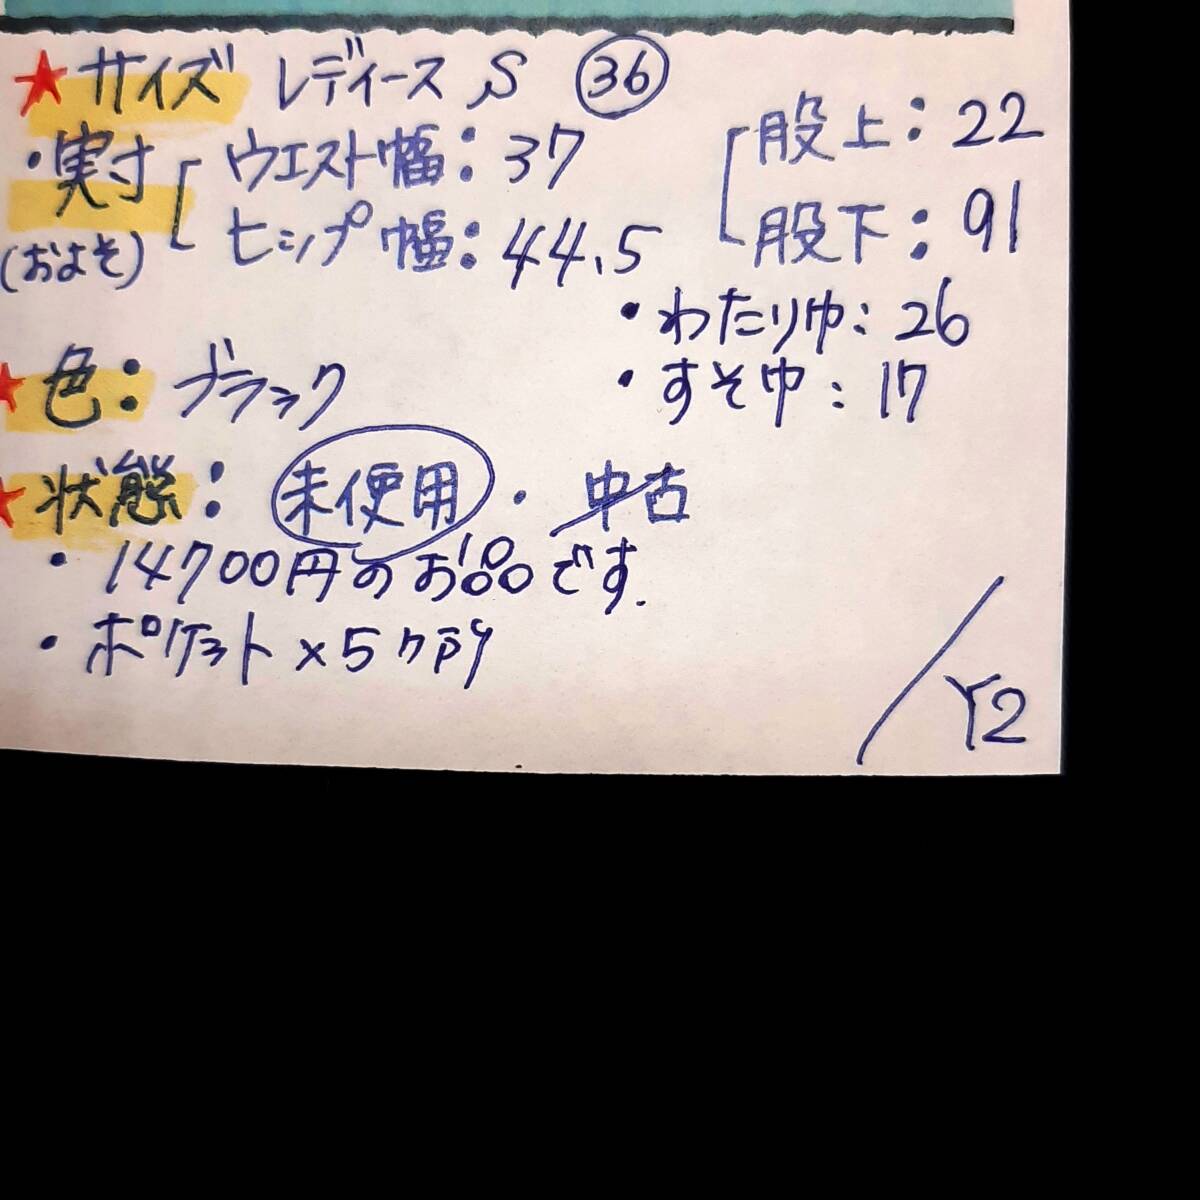 ★サイズ レディースS ㊱
・実寸(およそ)
ウエスト幅:37
ヒップ幅:44.5
股上:22
股下:91
・わたり巾:26
・すそ巾:17
★色:ブラック
★状態:未使用・中古
・14700円のお品です.
・ポケット×5ヶ所
/Y2